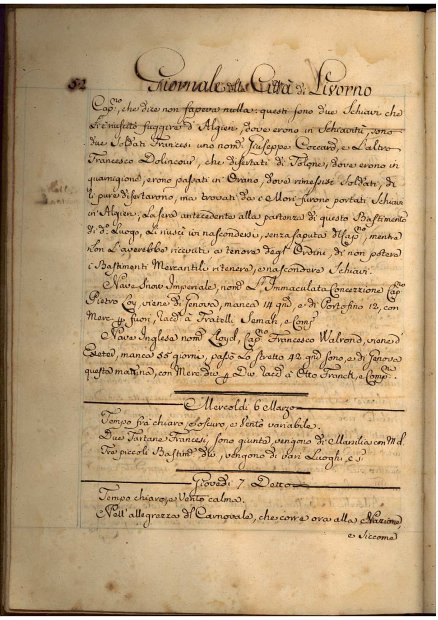 52 Giornale della Città di Livorno
Cap.no, che dice non sapeva nulla: questi sono due Schiavi che
li è riuscito fuggire d'Algieri, dove erono in Schiavitù, sono
due Soldati Francesi uno nom.° Giuseppe Coccard, e L'altro
Francesco Dolincour, che disertati di Tolone, dove erono in
guarnigione, erono passati in Orano, dove rimessisi Soldati, di
li pure disertarono, ma trovati da e Mori furono portati Schiavi
in Algieri, La sera antecedente alla partenza di questo Bastimento
di d.° Luogo, Li riuscì in nascondersi, senza saputa del Cap.no, mentre
non L'averebbe ricevuti a tenore degl'Ordini, di non potere
i Bastimenti Mercantili ritenere, e nascondere Schiavi.
Nave Snow Imperiale, nom.° L'Immaculata Concezzione Cap.no
Pietro Loy, viene di Genova, manca 14 gni e di Portofino 12, con
Merc. p fuori, racc.° à Fratelli Semah, e Comp.
Nave Inglese nom.° Lloyd, Cap.no Francesco Walrond, viene d
Exeter, manca 55 giorni, passò Lo stretto 42 gni sono, e di Genova
questa mattina, con Merc. div. p Div. racc.° à Otto Franck, e Comp.
Mercoldi 6 Marzo
Tempo frà chiaro, e oscuro, e Vento variabile.
Due Tartane Francesi, sono giunte vengono di Marsilia con M. d.
Tre piccoli Bastim.ti vengono di vari Luoghi, e s
Giovedi 7 Detto
Tempo chiaro, e Vento calma.
Nell'allegrezza del Carnovale, che corre ora alla Nazione,
e siccome